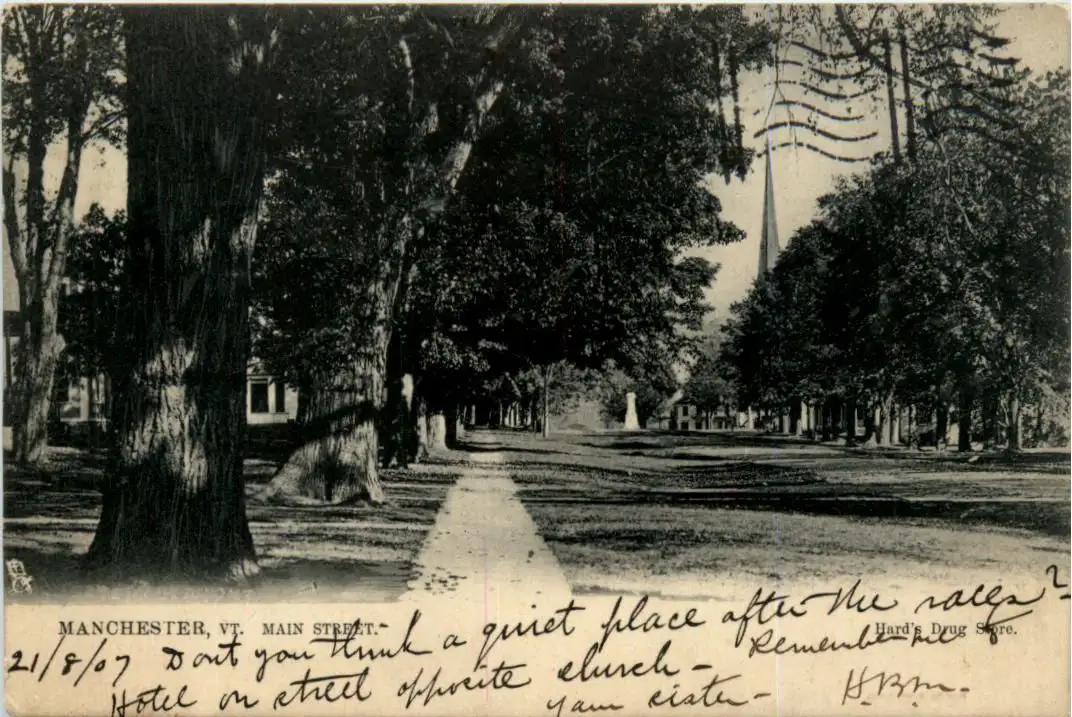 MANCHESTER, VT. MAIN STREET.
Hard's Drug Store.
21/8/07 Dont you think a quiet place after the races?
Remember me
Hotel on street opposite church –
your sister – H.B.M.